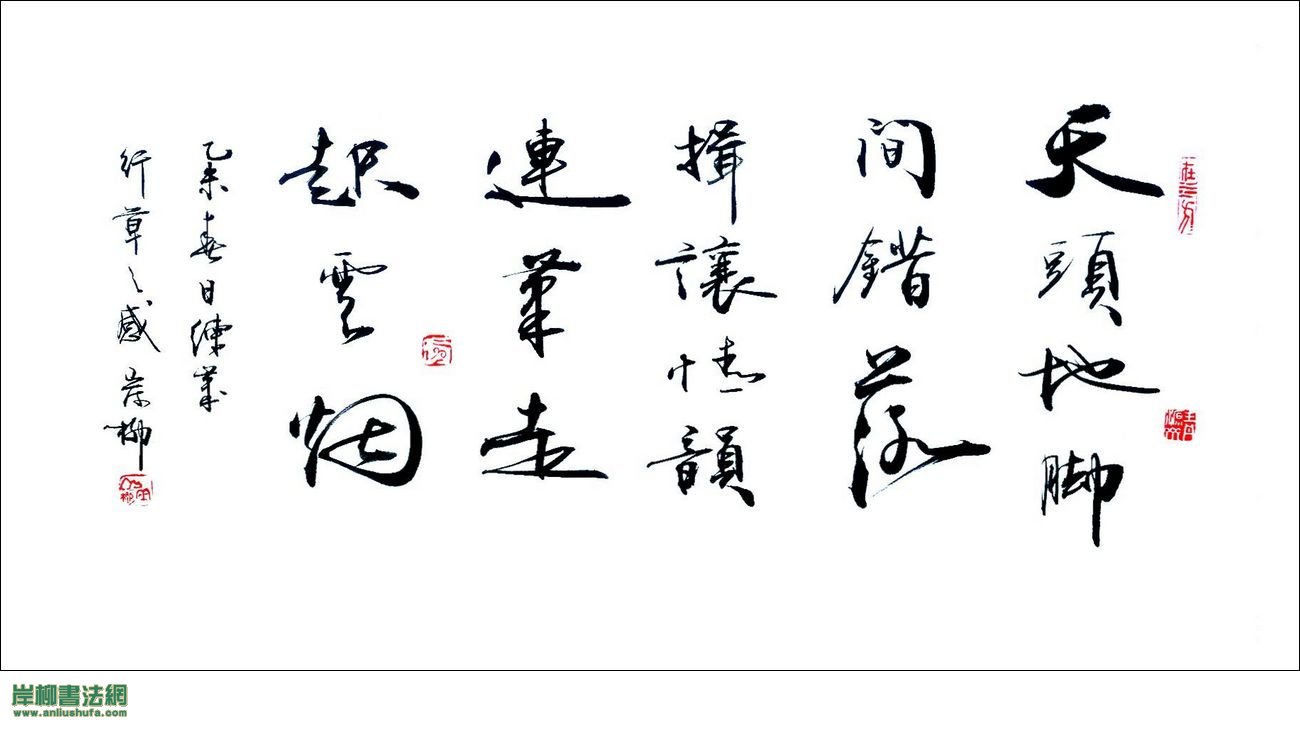 天頭地脚
间錯落
揖讓情韻
連筆走
起雲烟
乙未春日練筆
行草之感岸柳
岸柳書法網
www.anliushufa.com